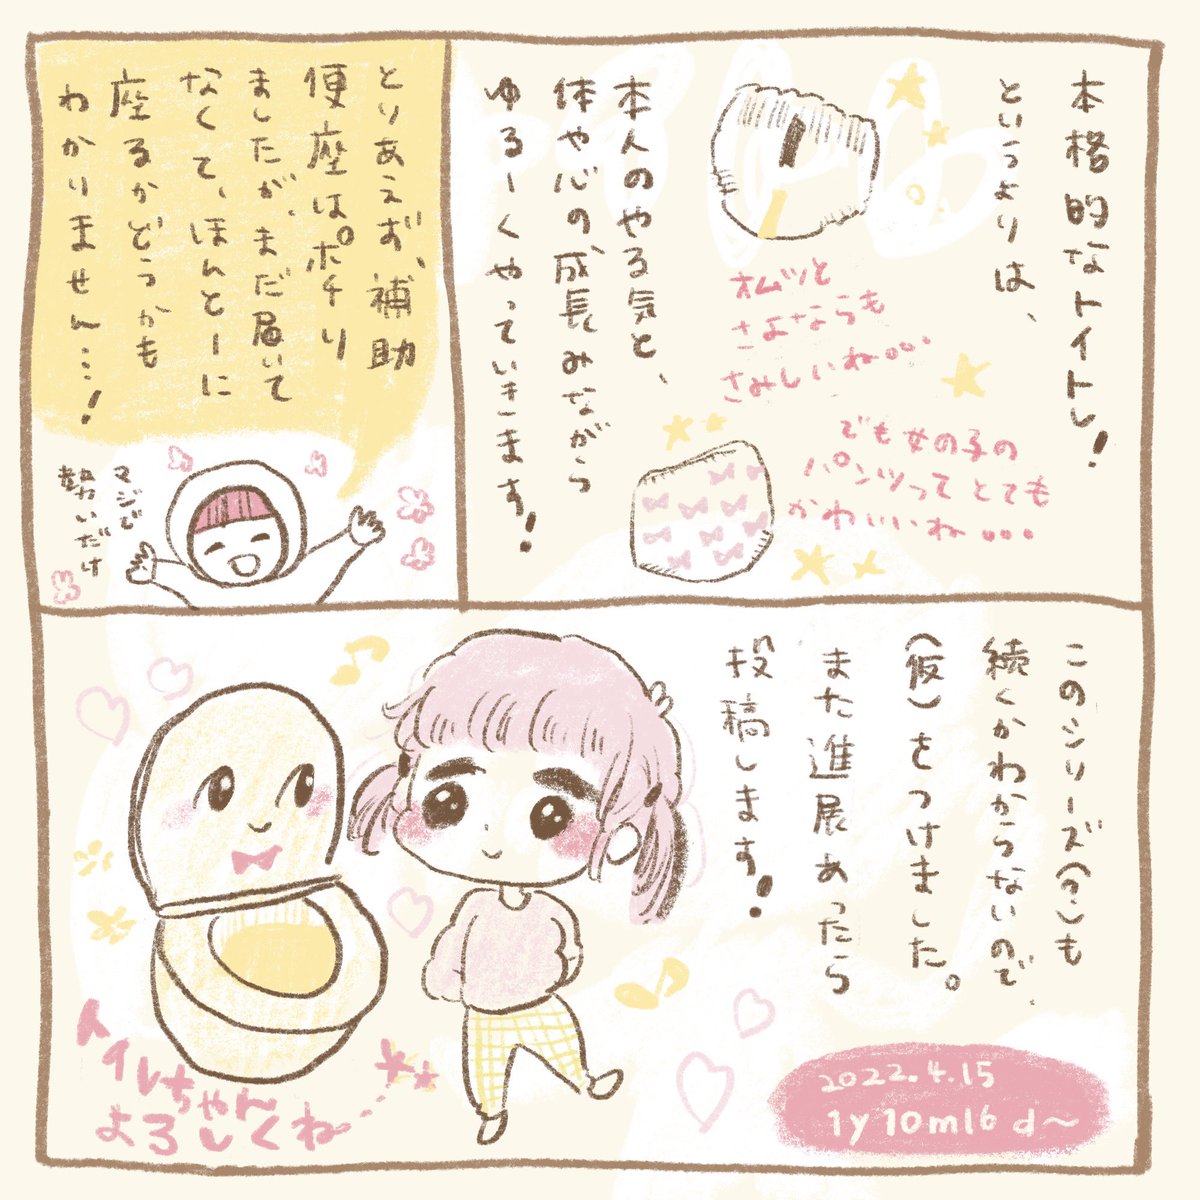 本格的なトイトレ!
というよりは、
オムツと
さよならも
さみしいね…
でも女の子の
パンツってとても
かわいいね…
本人のやる気と、
体や心の成長みながら
ゆるーくやっていきます!
とりあえず、補助
便座はポチり
ましたが、まだ届いて
なくて、ほんとーに
座るかどうかも
わかりません…!
マジで
勢いだけ
このシリーズ(?)も
続くかわからないので、
(仮)をつけました。
また進展あったら
投稿します!
トイレちゃん
よろしくね
2022.4.15
1y10m16d～